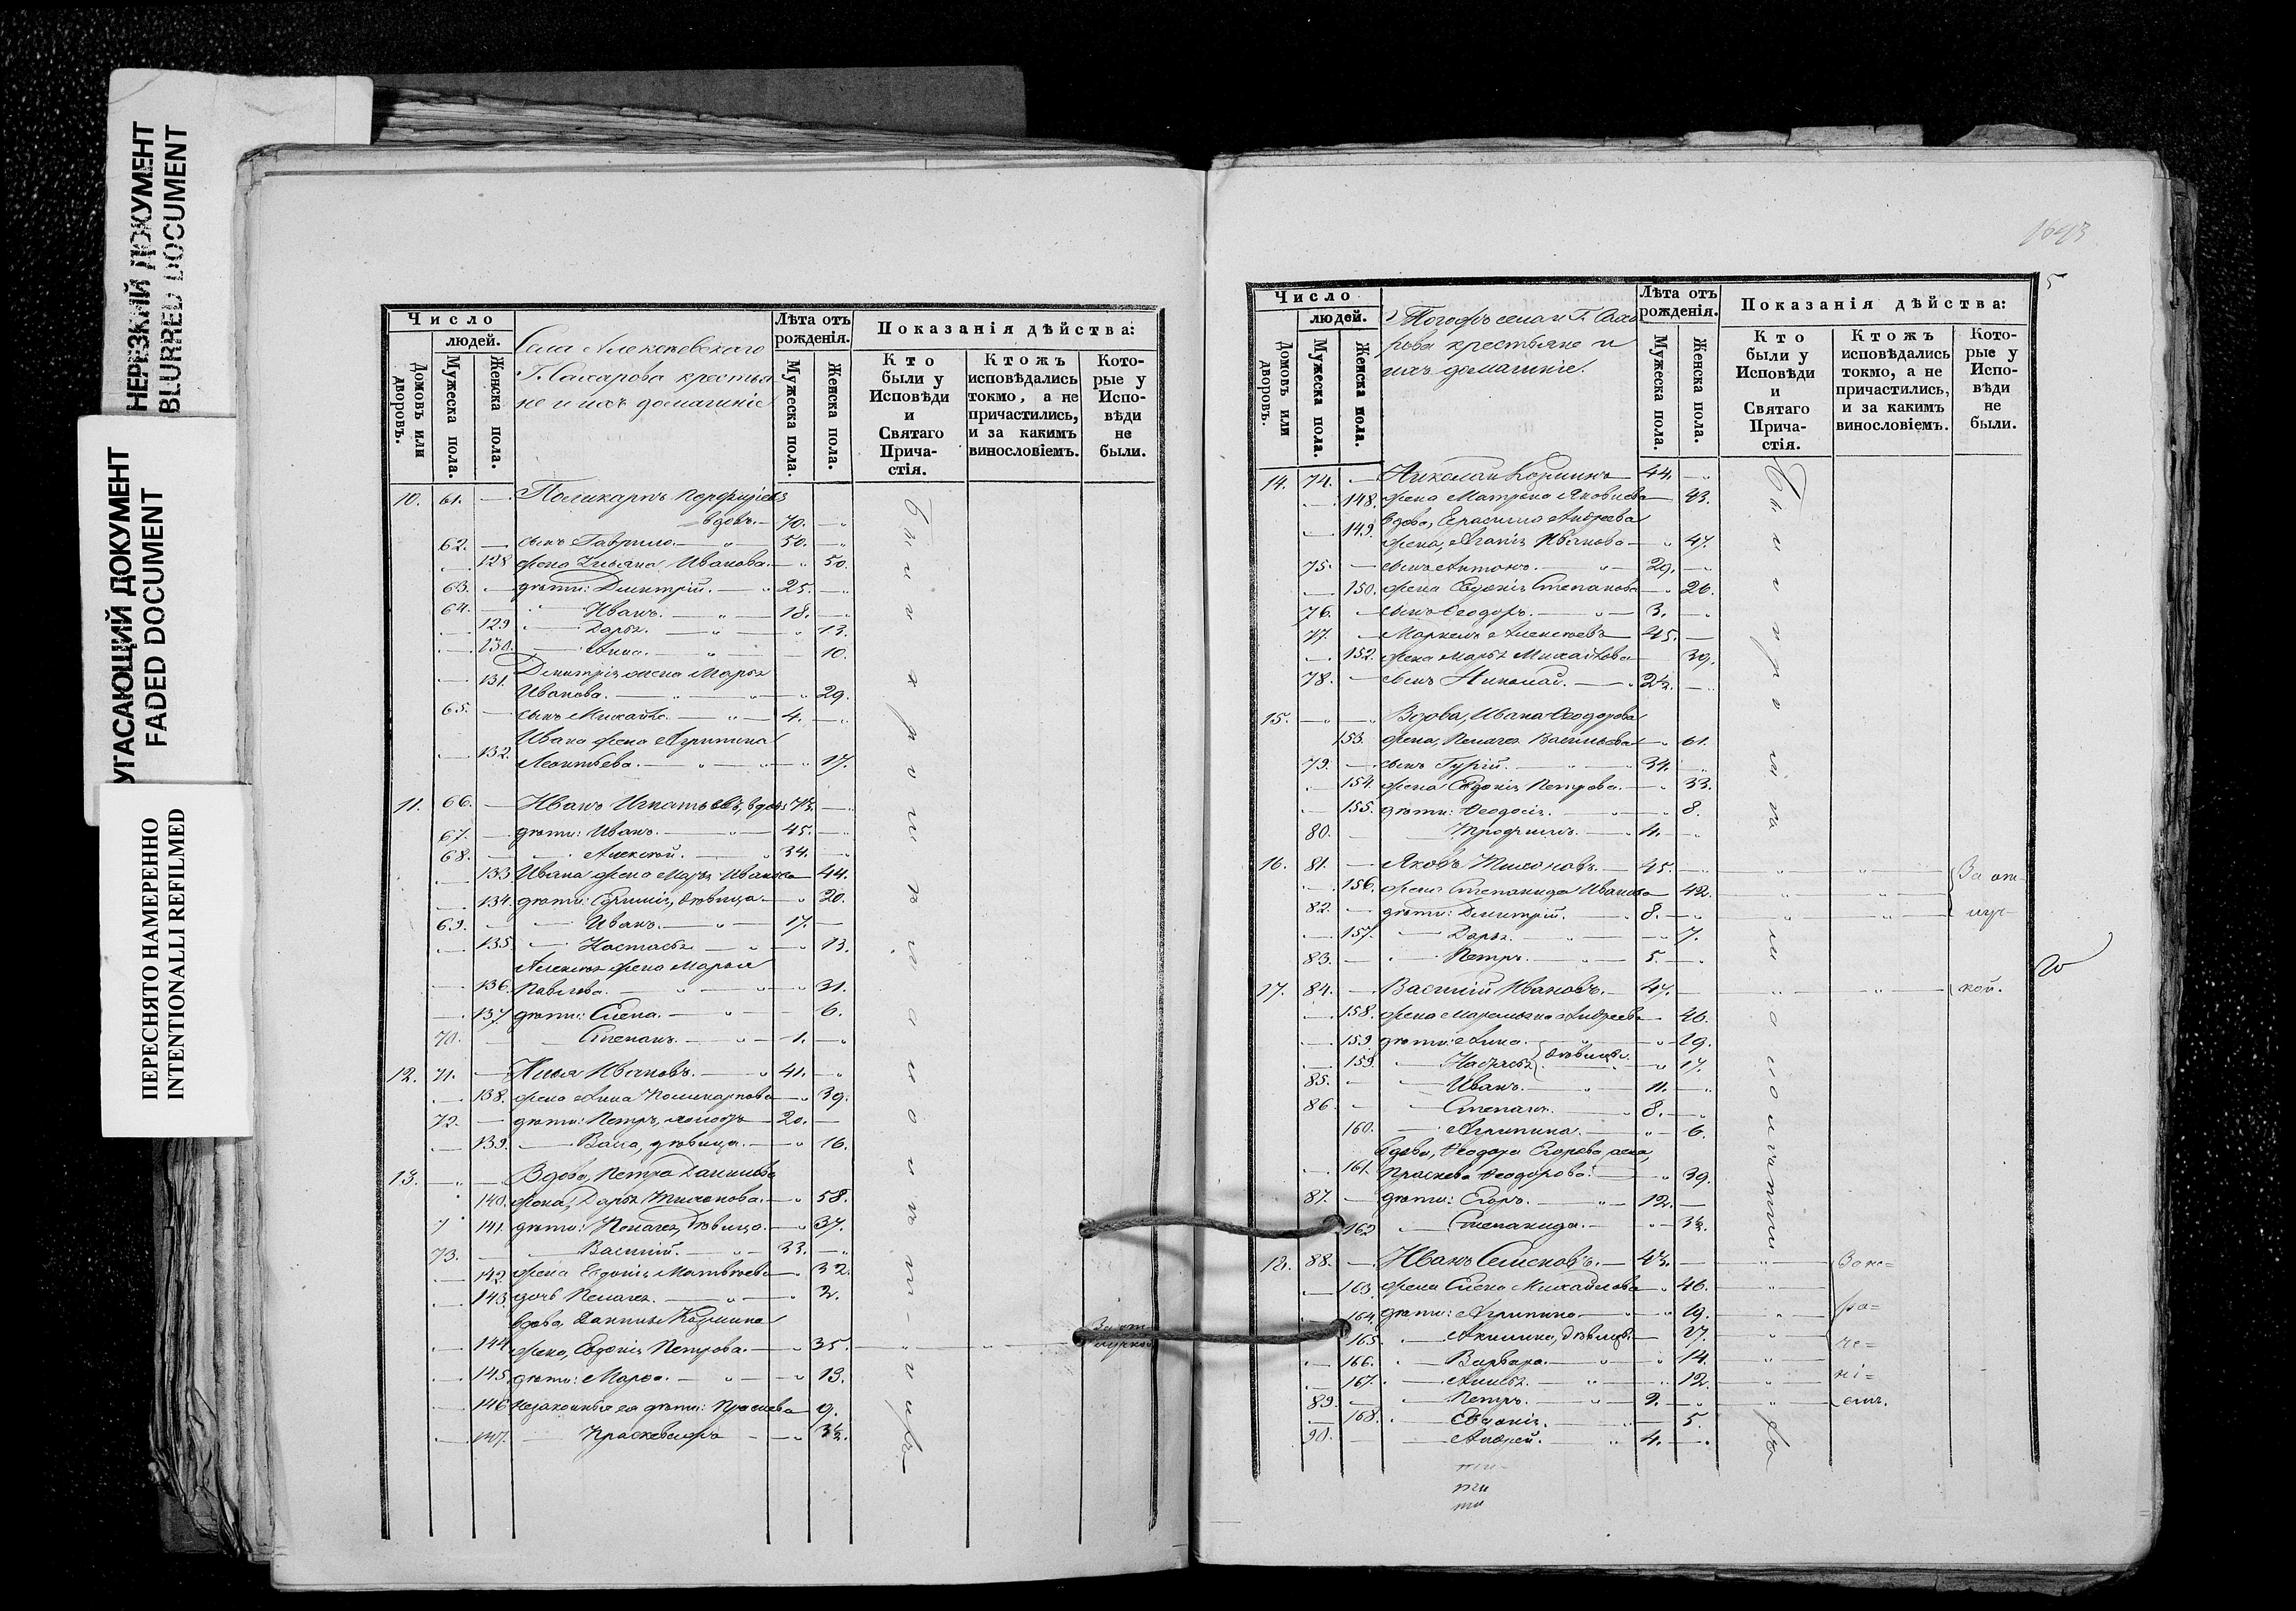 НЕРЕЗКИЙ ДОКУМЕНТ
BLURRED DOCUMENT
УГАСАЮЩИЙ ДОКУМЕНТ
FADED DOCUMENT
ПЕРЕСНЯТО НАМЕРЕННО
INTENTIONALLI REFILMED
Число
людей.
Домовъ или дворовъ.
Мужеска пола.
Женска пола.
Села Алексѣевскаго
Г. Сахарова крестья
не и ихъ домашніе
Лѣта отъ рожденія.
Мужеска пола.
Женска пола.
Показанія дѣйства:
Кто были у Исповѣди и Святаго Прича- стія.
Ктожъ исповѣдались токмо, а не причастились, и за какимъ винословіемъ.
Кото- рые у Испо- вѣди не были.
10. 61. — Поликарпъ Порфирьевъ
вдовъ. — 70. —
62. — сынъ Гаврило. — 50. —
128 жена Ульяна Иванова. — 50.
63. — дѣти: Димитрій. — 25. —
64. — Иванъ. — 18. —
129 — Дарья. — 13.
130. — Анна. — 10.
131. Димитрія жена Марья
Иванова. — 29.
65. — сынъ Михайло. — 4. —
132. Ивана жена Агрипина
Леонтьева. — 17.
11. 66. — Иванъ Игнатьевъ, вдовъ 73. —
67. — дѣти: Иванъ. — 45. —
68. — Алексѣй. — 34. —
133 Ивана жена Марья Иванова — 44.
134. дѣти: Ефимія, дѣвица. — 20.
69. — Иванъ. — 17. —
135. — Настасья. — 13.
Алексѣя жена Марья
136. Павлова. — 31.
137. дѣти: Елена. — 6.
70. — Степанъ. — 1. —
12. 71. — Илья Ивановъ. — 41. —
138. жена Анна Поликарпова — 39.
72. — дѣти: Петръ, холостъ — 20. —
139. — Васса, дѣвица. — 16.
13. — Вдова, Петра Данилова
140. жена, Дарья Тихонова. — 58.
141. дѣти: Пелагея, дѣвица. — 37.
73. — Василій. — 33. —
142. жена Евдокія Матвѣева — 32.
143 дочь Пелагея. — 2.
вдова Даніила Козмина
144. жена, Евдокія Петрова. — 35.
За от
лучкой
145. дѣти: Марѳа. — 13.
146 незаконныя ея дѣти: Праскева — 9.
147. — 3½.
1693
5
Число
людей.
Домовъ или дворовъ.
Мужеска пола.
Женска пола.
Тогожъ села и Г. Саха
рова крестьяне и
ихъ домашніе.
Лѣта отъ рожденія.
Мужеска пола.
Женска пола.
Показанія дѣйства:
Кто были у Исповѣди и Святаго Прича- стія.
Ктожъ исповѣдались токмо, а не причастились, и за какимъ винословіемъ.
Кото- рые у Испо- вѣди не были.
14. 74. — Николай Козминъ — 44. —
148. жена Матрена Яковлева — 43.
149. вдова, Герасима Андреева
жена, Агапія Иванова — 47.
75. — сынъ Антонъ. — 29. —
150. жена Евдокія Степанова — 26.
76. — сынъ Ѳеодоръ. — 3. —
77. — Маркелъ Алексѣевъ — 45. —
152. жена Марья Михайлова — 39.
78. — сынъ Николай. — 2½. —
15. — Вдова, Ивана Ѳеодорова
153. жена, Пелагея Васильева — 61.
79. — сынъ Гурій. — 34.
154. жена Евдокія Петрова. — 33.
155. дѣти: Ѳеодосія. — 8.
80. — Трофимъ. — 4. —
16. 81. — Яковъ Тихоновъ. — 45. — За от
156. жена Степанида Иванова — 42.
82. — дѣти: Димитрій. — 8. — луч-
157. — Дарья. — 7.
83. — Петръ. — 5. —
17. 84. — Василій Ивановъ. — 47. — кой.
158. жена Маремьяна Андреева — 46.
159. дѣти: Анна. — 19.
159. — Настасья дѣвицы. — 17.
85. — Иванъ. — 11. —
86. — Степанъ. — 8. —
160. — Агрипина. — 6.
вдова, Ѳеодора Егорова жена,
161. Праскева Ѳеодорова. — 39.
87. — дѣти: Егоръ. — 12. —
162 — Степанида. — 3½.
18. 88. — Иванъ Семеновъ. — 43. — За не=
163. жена Елена Михайлова — 46.
164. дѣти: Агрипина — 19. ра=
165. — Акилина, дѣвицы. — 17.
166. — Варвара. — 14. че=
167. — Анисья. — 12. ні=
89. — Петръ. — 9. — емъ.
168. — Евдокія. — 5.
90. — Андрей. — 4. —